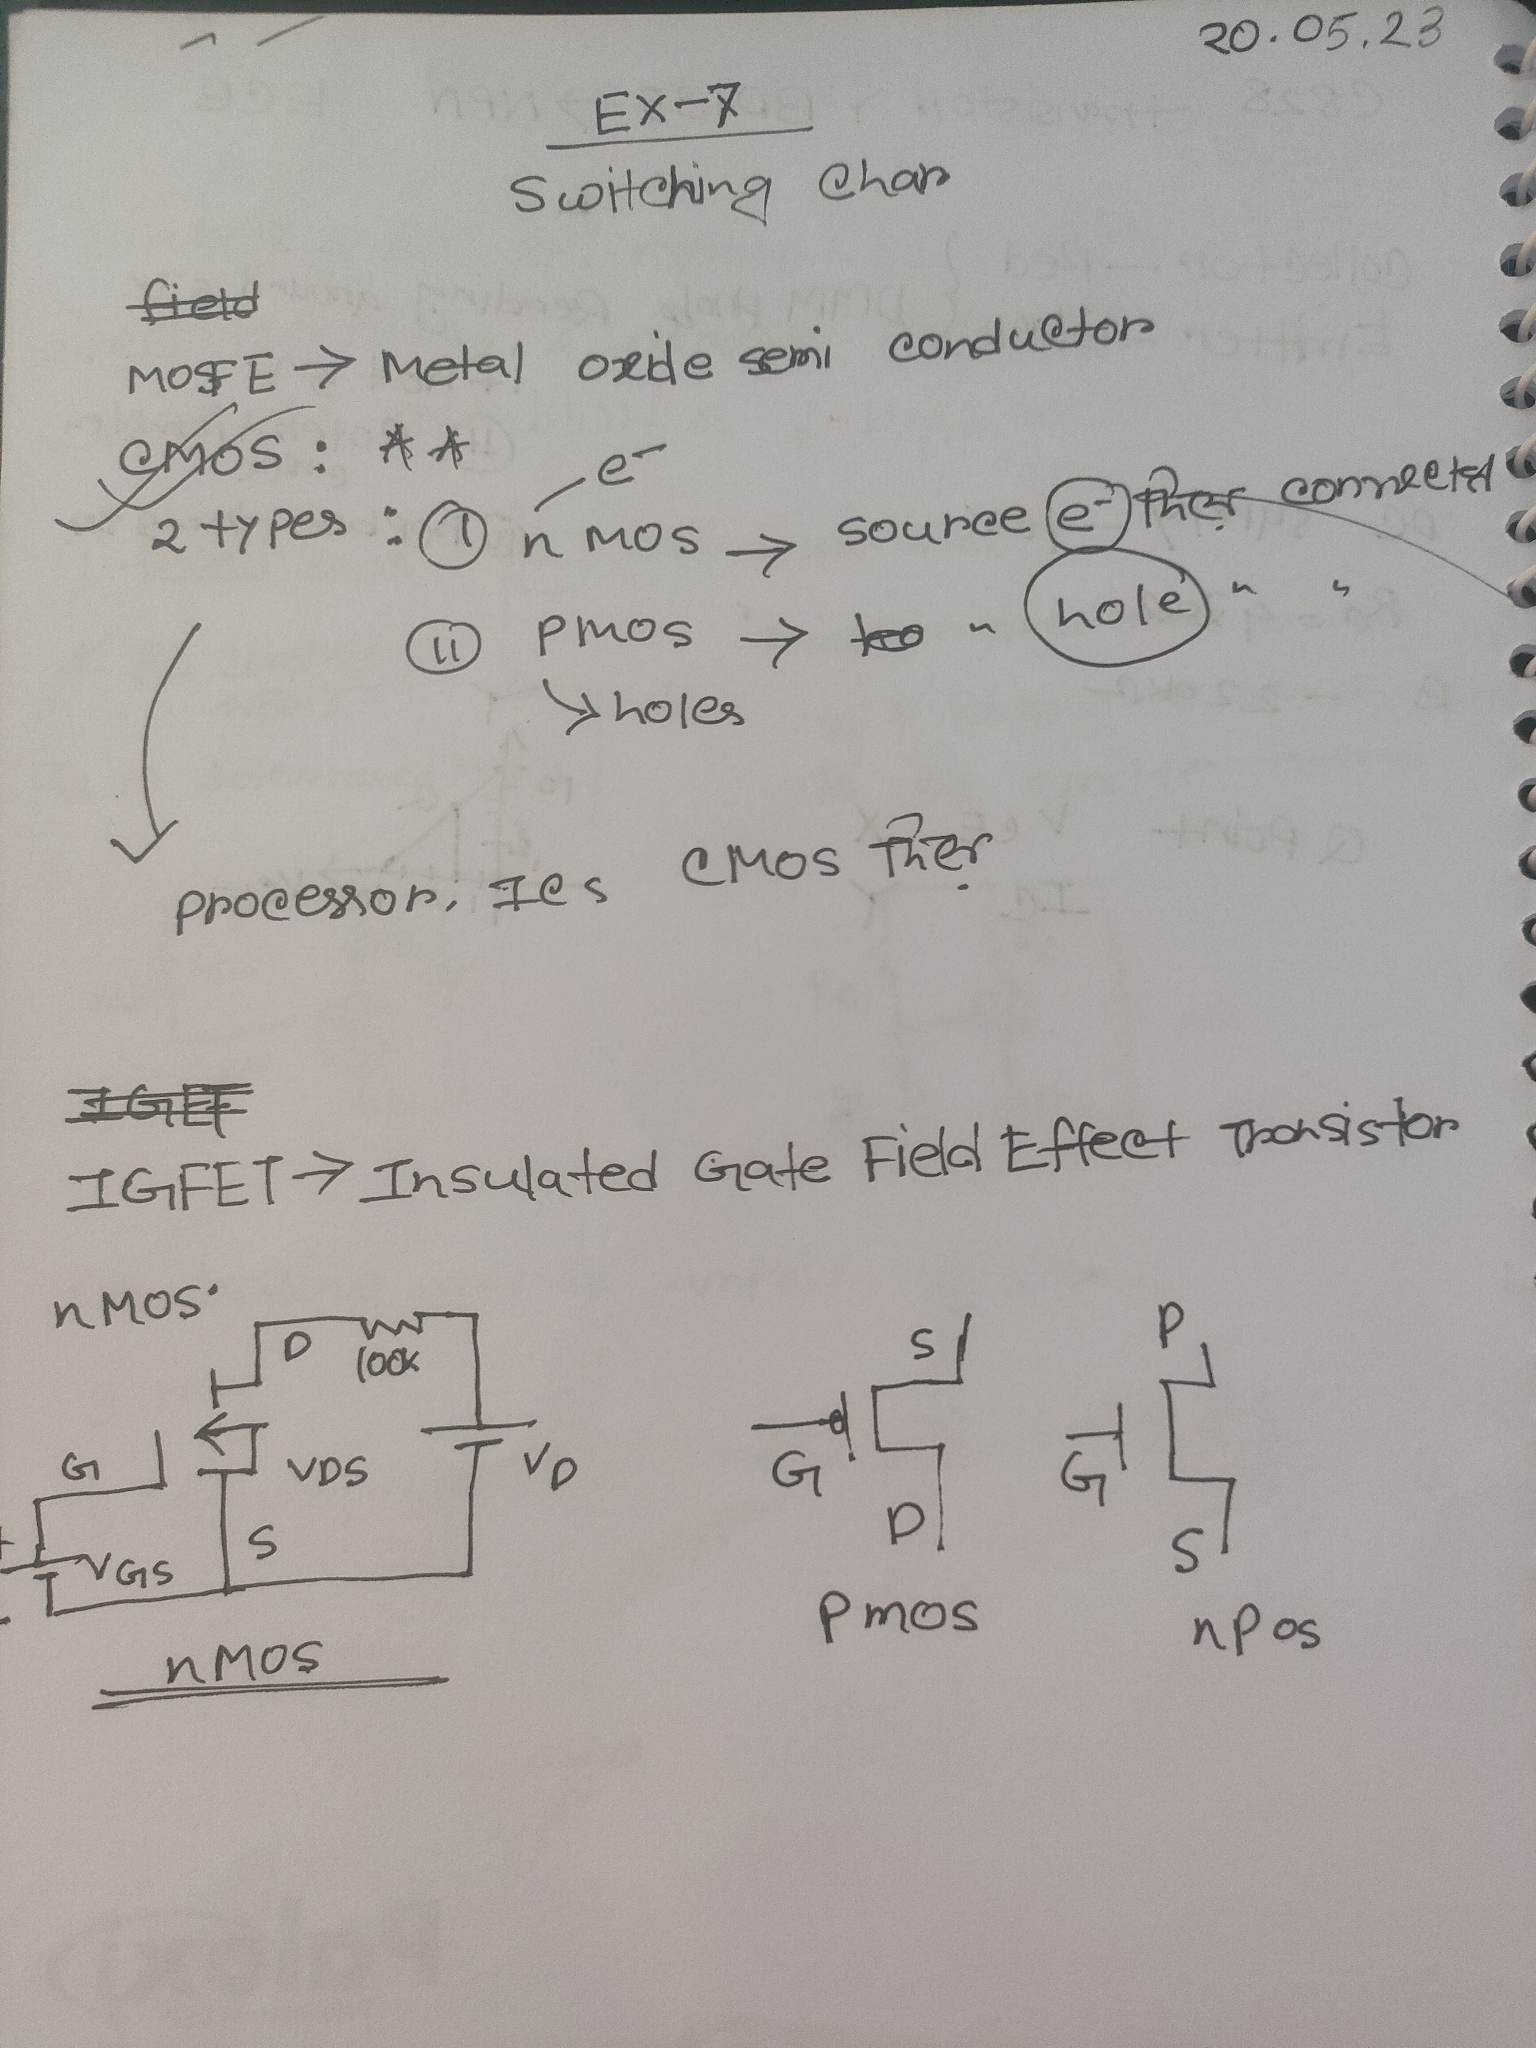 20.05.23
EX-7
Switching Char
field
MOSFE → Metal oxide semi conductor
CMOS: **
2 types: (i) n MOS → source e- দিয়ে connected
e-
(ii) PMOS → " hole " "
↳ holes
processor, ICs CMOS দিয়ে
IGEF
IGFET → Insulated Gate Field Effect Transistor
nMOS
D 100K
G VDS VD
+ VGS S
-
nMOS
S G D
Pmos
P G S
nPos